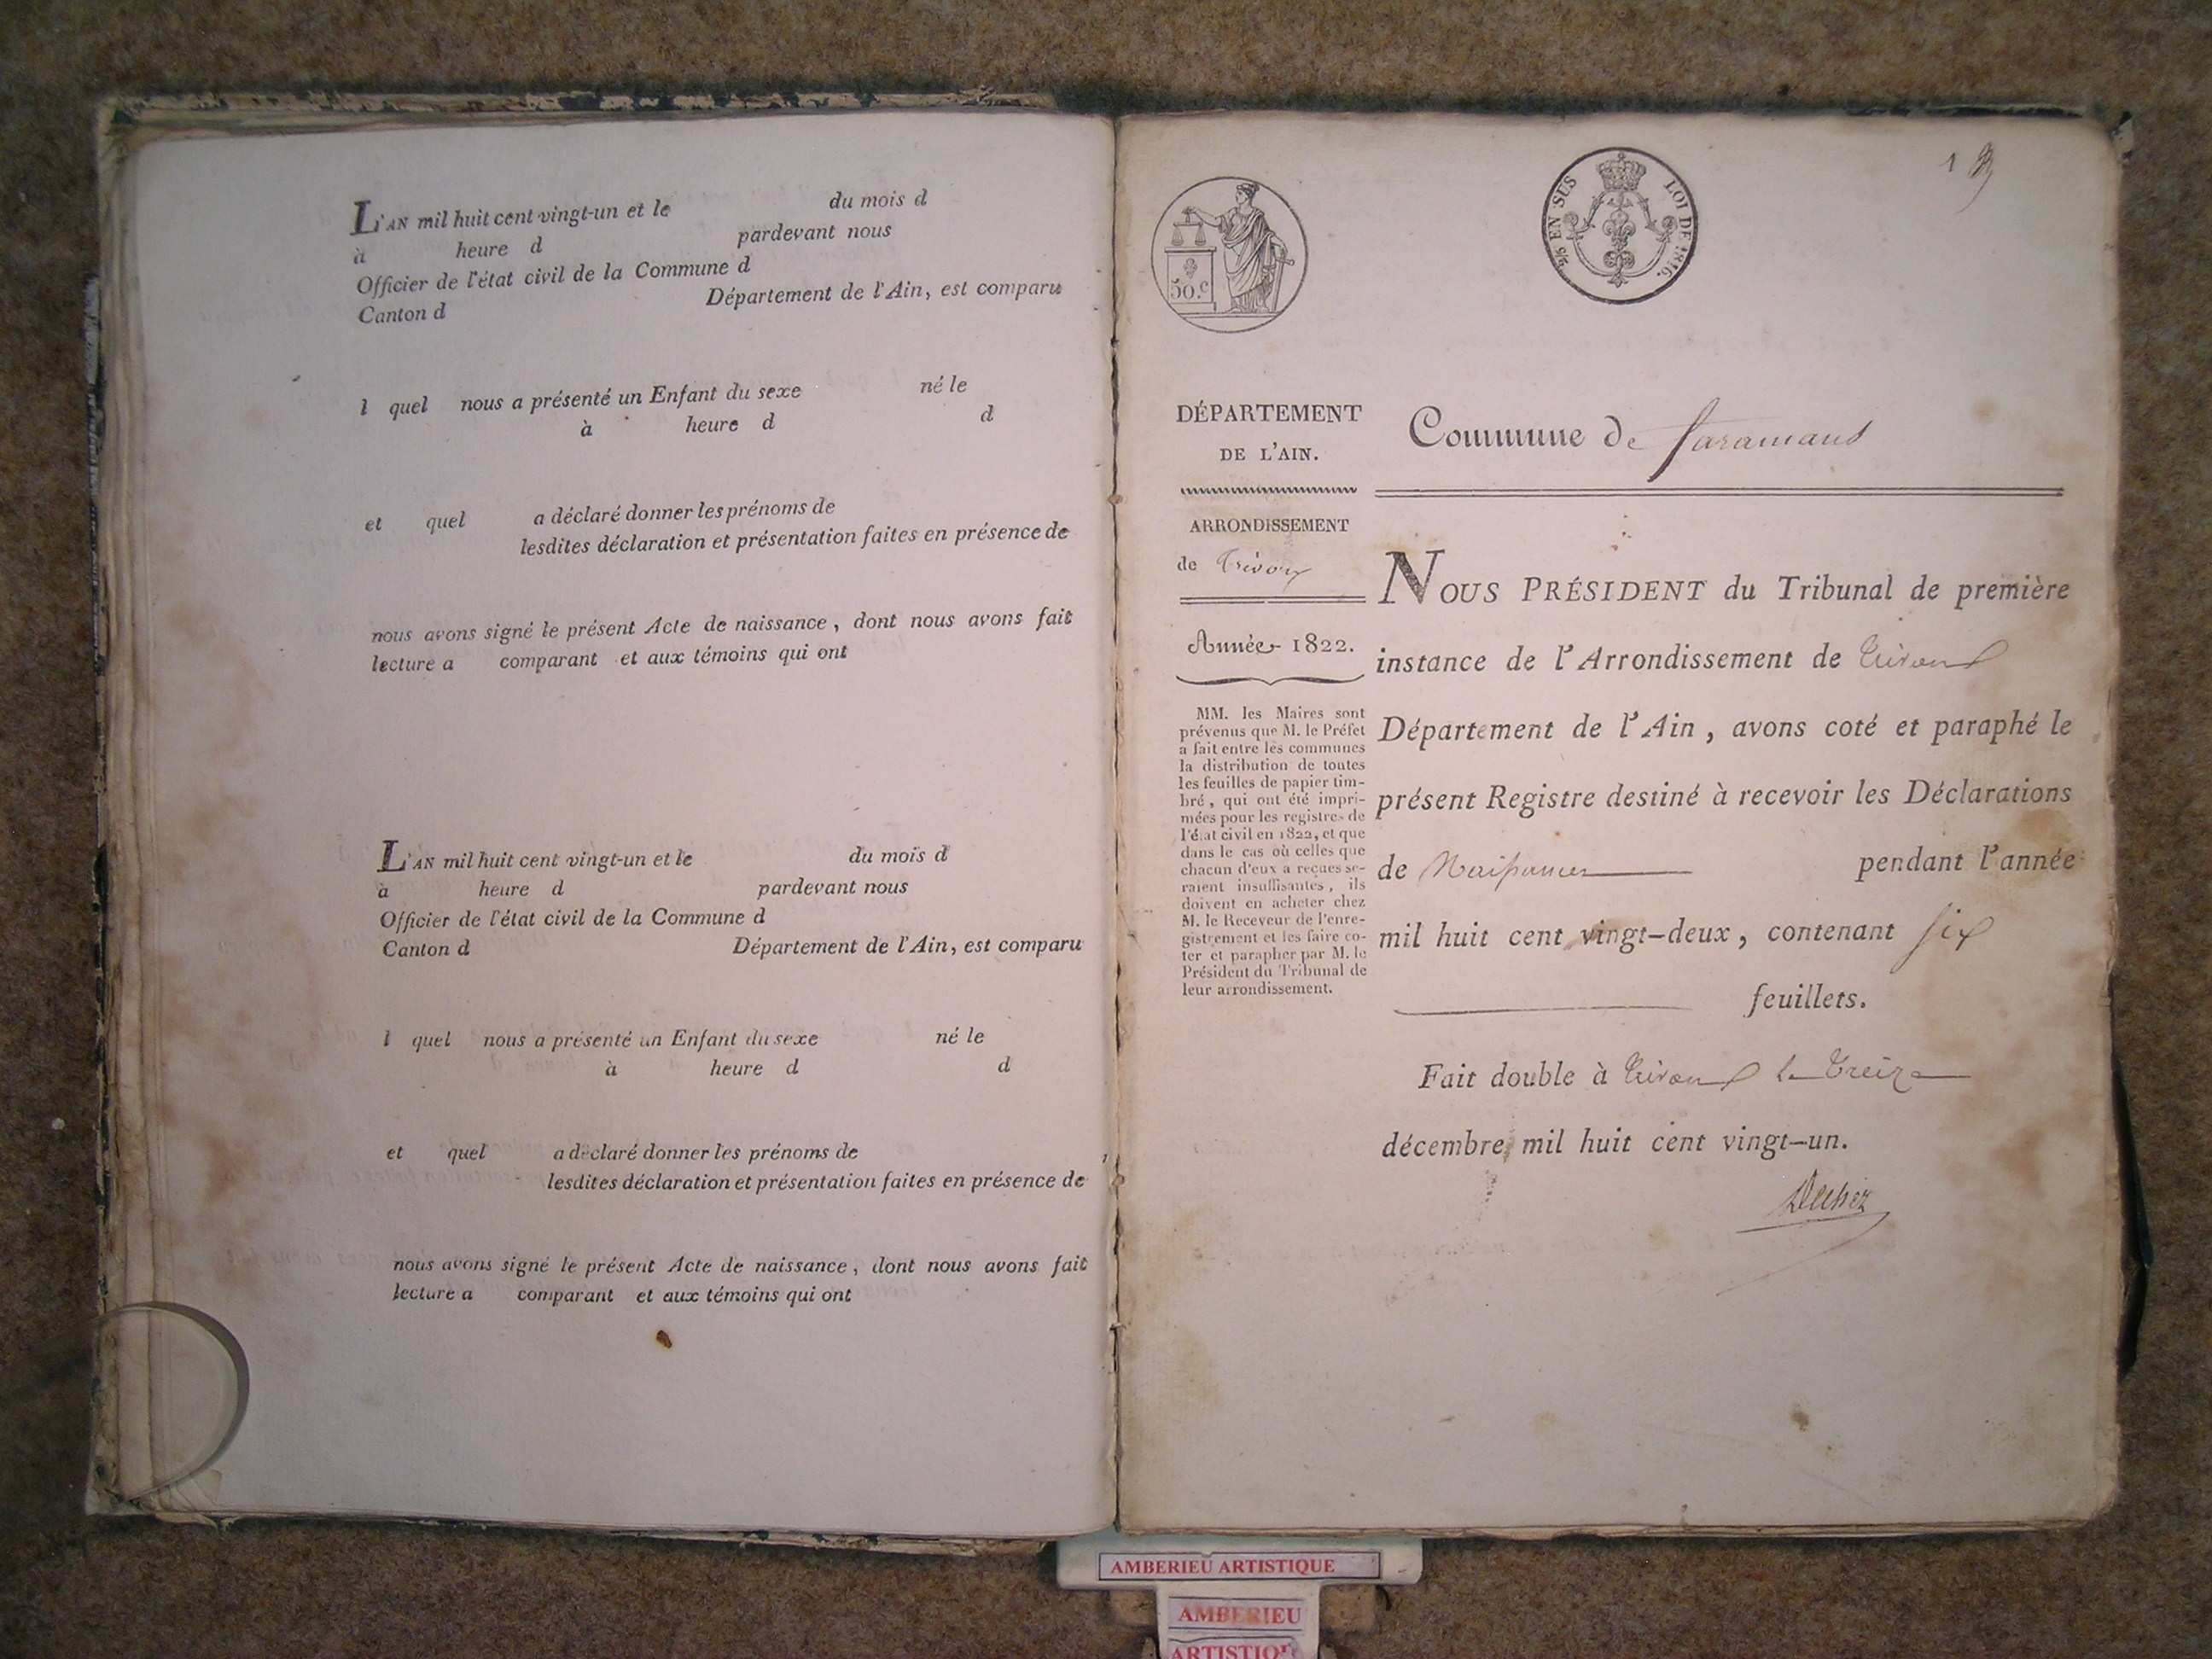 L'AN mil huit cent vingt-un et le du mois d
à heure d pardevant nous
Officier de l'état civil de la Commune d
Canton d Département de l'Ain, est comparu
l quel nous a présenté un Enfant du sexe né le
à heure d d
et quel a déclaré donner les prénoms de
lesdites déclaration et présentation faites en présence de
nous avons signé le présent Acte de naissance, dont nous avons fait
lecture a comparant et aux témoins qui ont
L'AN mil huit cent vingt-un et le du mois d
à heure d pardevant nous
Officier de l'état civil de la Commune d
Canton d Département de l'Ain, est comparu
l quel nous a présenté un Enfant du sexe né le
à heure d d
et quel a déclaré donner les prénoms de
lesdites déclaration et présentation faites en présence de
nous avons signé le présent Acte de naissance, dont nous avons fait
lecture a comparant et aux témoins qui ont
1
50.c
EN SUS LOI DE 1816.
DÉPARTEMENT
DE L'AIN.
ARRONDISSEMENT
de Trévoux
Année 1822.
MM. les Maires sont
prévenus que M. le Préfet
a fait entre les communes
la distribution de toutes
les feuilles de papier tim-
bré, qui ont été impri-
mées pour les registres de
l'état civil en 1822, et que
dans le cas où celles que
chacun d'eux a reçues se-
raient insuffisantes, ils
doivent en acheter chez
M. le Receveur de l'enre-
gistrement et les faire co-
ter et parapher par M. le
Président du Tribunal de
leur arrondissement.
Commune de faramans
NOUS PRÉSIDENT du Tribunal de première
instance de l'Arrondissement de Trévoux
Département de l'Ain, avons coté et paraphé le
présent Registre destiné à recevoir les Déclarations
de Naissances pendant l'année
mil huit cent vingt-deux, contenant six
feuillets.
Fait double à Trévoux le treize
décembre mil huit cent vingt-un.
AMBERIEU ARTISTIQUE
AMBERIEU